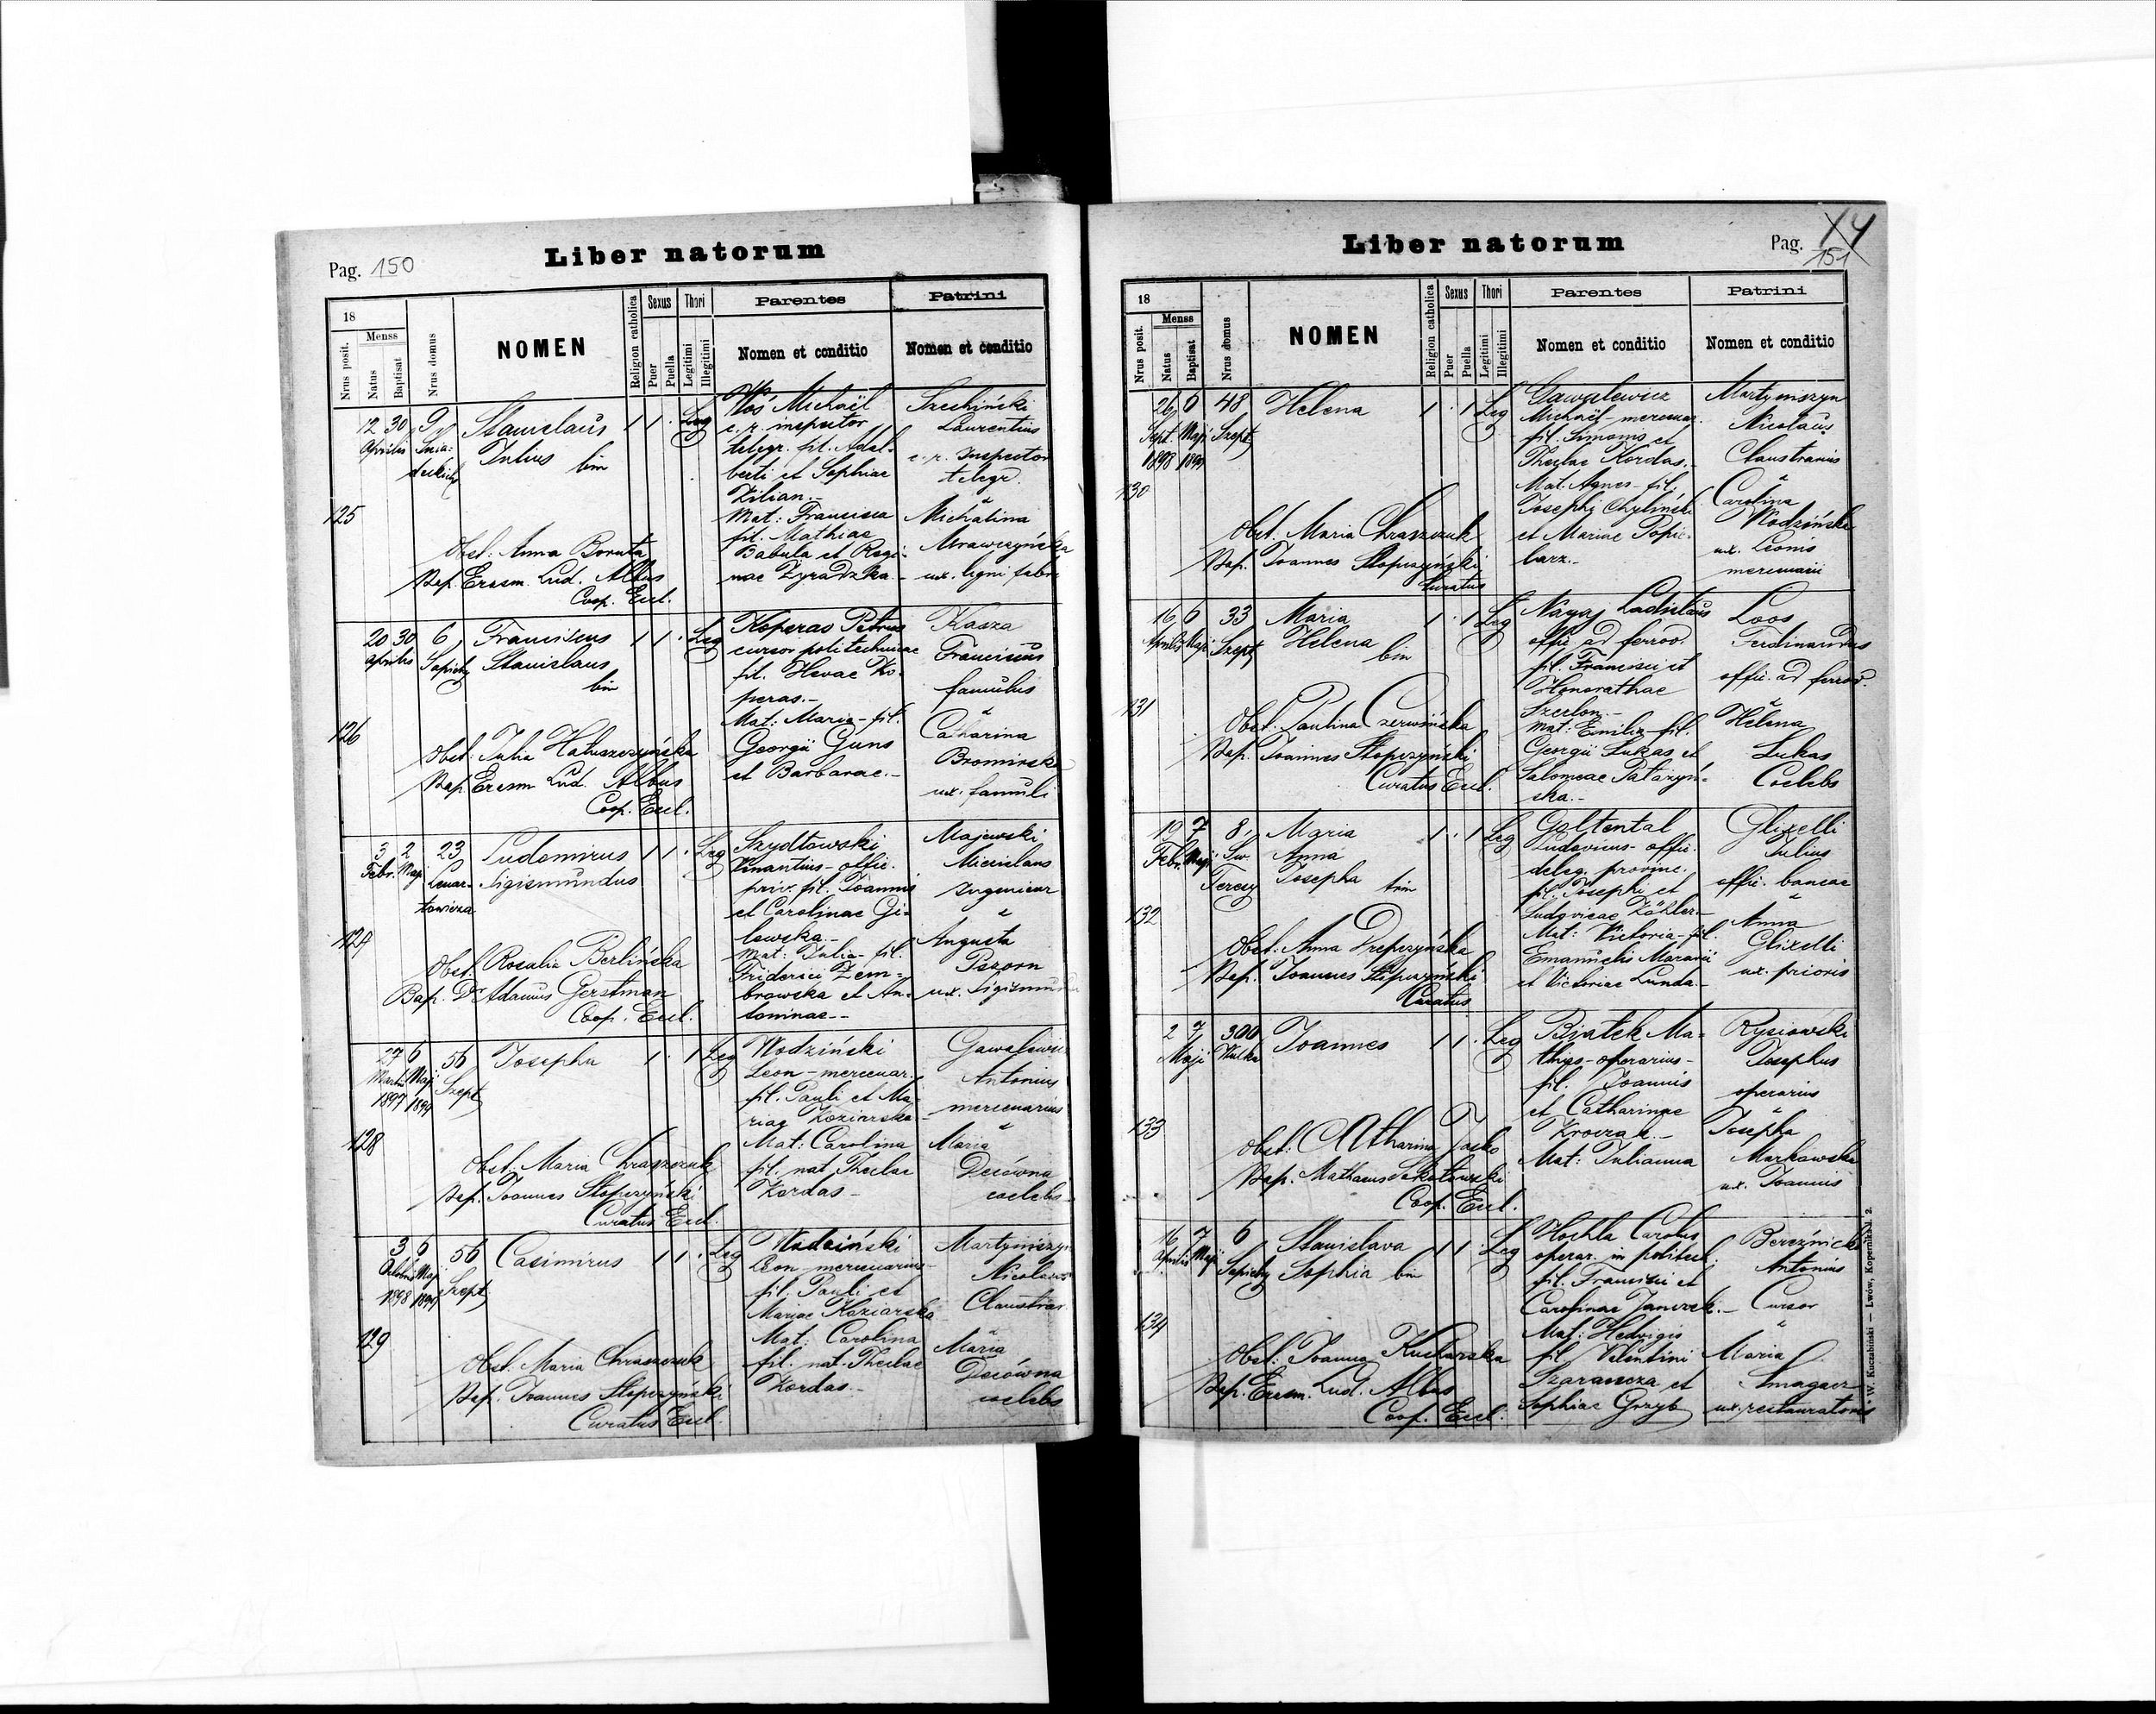 Pag. 150
Liber natorum
18
Nrus posit.
Menss
Natus
Baptisat
Nrus domus
NOMEN
Religion catholica
Sexus
Puer
Puella
Thori
Legitimi
Illegitimi
Parentes
Nomen et conditio
Patrini
Nomen et conditio
125
12 30 9
Aprilis
Stanislaus
Julius bin
1 1 Leg
Obst: Anna Boruta
Bap. Erasm. Lud. Albus
Coop. Eccl.
Woś Michaël
c. r. inspector
telegr. fil. Adal-
berti et Sophiae
Kilian.-
Mat: Francisca
fil. Mathiae
Babula et Regi-
nae Żyradzka.-
Laurentius
c. r. Inspector
telegr.
Michalina
Mrawczyńska
ux. ligni fabri
126
20 30 6
Aprilis Sapiehy
Franciscus
Stanislaus
bin
1 1 Leg
Obst: Julia Haluszczyńska
Bap. Erasm Lud. Albus
Coop. Eccl.
Koperas Petrus
cursor politechnicae
fil. Hevae Ko-
peras.-
Mat: Maria - fil.
Georgii Guns
et Barbarae.-
Kasza
Franciscus
famulus
Catharina
Bromirska
ux. famuli
127
3 2 23
Febr. Maji Lenar-
towicza
Ludomirus
Sigismundus
1 1 Leg
Obst. Rosalia Berlińska
Bap. Dr Adamus Gerstman
Coop. Eccl.
Szydłowski
Venantius - offic.
priv. fil. Joannis
et Carolinae Gi-
lewska.-
Mat: Julia - fil.
Friderici Dem-
browska et An-
toninae.-
Majewski
Miecislaus
Ingenieur
Augusta
Pszorn
ux. Sigismundi
128
27 6 56
Martii Maji Szept
1897 1899
Josepha
1 1 Leg
Obst: Maria Chraszczuk
Bap. Joannes Stopczyński
Curatus Eccl.
Wodziński
Leon - mercenar.
fil. Pauli et Ma-
riae Koziarska
Mat: Carolina
fil. nat. Theclae
Kordas -
Antonius
mercenarius
Maria
Decówna
coelebs
129
3 6 56
Octobris Maji Szept.
1898 1899
Casimirus
1 1 Leg
Obst. Maria Chraszczuk
Bap. Joannes Stopczyński
Curatus Eccl.
Wodziński
Leon mercenarius
fil. Pauli et
Mariae Koziarska
Mat: Carolina
fil. nat. Theclae
Kordas.-
Martyniszyn
Nicolaus
Maria
Decówna
coelebs
Liber natorum
Pag. 14
151
18
Nrus posit.
Menss
Natus
Baptisat
Nrus domus
NOMEN
Religion catholica
Sexus
Puer
Puella
Thori
Legitimi
Illegitimi
Parentes
Nomen et conditio
Patrini
Nomen et conditio
130
26 6 48
Sept. Maji Szept
1898 1899
Helena
1 1 Leg
Obst. Maria Chraszczuk
Bap. Joannes Stopczyński
Curatus
Gawylewicz
Michaël - mercenar.
fil. Simonis et
Theclae Kordas.-
Mat. Agnes - fil.
Josephi Chyliński
et Mariae Popie-
larz.-
Martyniszyn
Nicolaus
Carolina
Wodzińska
ux. Leonis
mercenarii
131
16 6 33
Aprilis Maji Szept
Maria
Helena
bin
1 1 Leg
Obst. Paulina Czerwińska
Bap. Joannes Stopczyński
Curatus Eccl.
Nayaj Ladislaus
offic. ad ferrov.
fil. Francisci et
Honorathae
Mat: Emilia - fil.
Georgii Lukas et
Salomeae
ska.-
Loos
Ferdinandus
offic. ad ferrov.
Helena
Lukas
Coelebs
132
19 7 8
Febr. Maji Św.
Teresy
Maria
Anna
Josepha trin
1 1 Leg
Obst. Anna Drepczyńska
Bap. Joannes Stopczyński
Curatus
Goltental
Ludovicus - offic.
deleg. provinc.
fil. Josephi et
Ludovicae
Mat: Victoria - fil.
Emanuelis
et Victoriae Lunda.-
Glixelli
Julius
offic. bancae
Anna
Glixelli
ux. prioris
133
2 7 300
Maji Kulka
Joannes
1 1 Leg
Obst: Catharina Jasko
Bap. Mathaeus Sokołowski
Coop. Eccl.
Biatek Ma-
thias - operarius -
fil. Joannis
et Catharinae
Kroczak.-
Mat: Julianna
Rysiowski
Josephus
operarius
Josepha
Markowska
ux. Joannis
134
16 7 6
Aprilis Maji Sapiehy
Stanislava
Sophia bin
1 1 Leg
Obst: Joanna Kucharska
Bap. Erasm. Lud. Albus
Coop. Eccl.
Hochla Carolus
operar. in politech.
fil. Francisci et
Carolinae Janczek.-
Mat: Hedvigis
fil. Valentini
Szarancza et
Sophiae Grzyb
Bereźnicki
Antonius
Cursor
Maria
Smagacz
ux. restauratoris
W. Kuczabiński — Lwów, Kopernika l. 2.